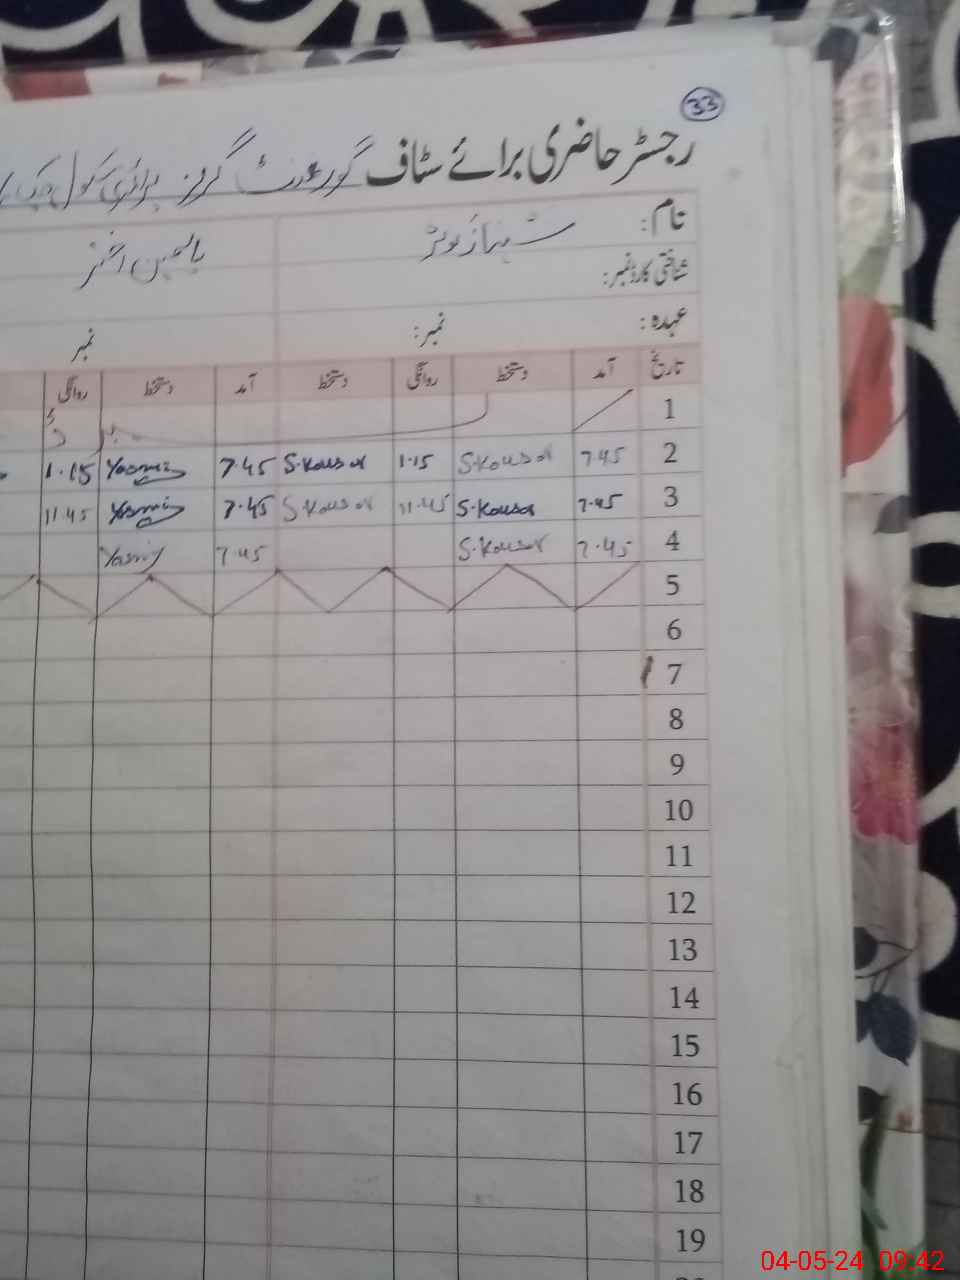 33
رجسٹر حاضری برائے سٹاف گورنمنٹ گرلز پرائمری سکول
نام: شہناز کوثر یاسمین اختر
شناختی کارڈ نمبر:
عہدہ: نمبر: نمبر
تاریخ آمد دستخط روانگی دستخط آمد دستخط روانگی
1
2 7.45 S.Kousar 1.15 S.Kousar 7.45 Yasmin 1.15
3 7.45 S.Kousar 11.45 S.Kousar 7.45 Yasmin 11.45
4 7.45 S.Kousar 7.45 Yasmin
5
6
7
8
9
10
11
12
13
14
15
16
17
18
19
04-05-24 09:42